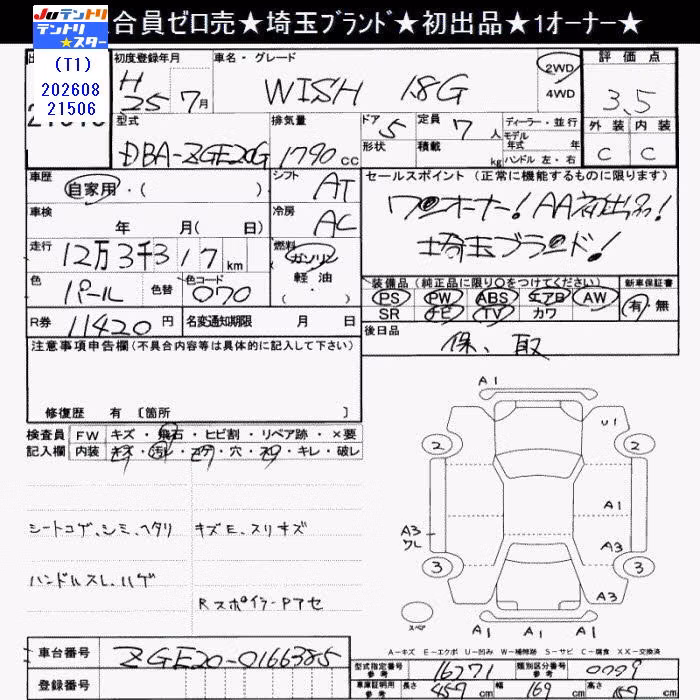 合員ゼロ売★埼玉ブランド★初出品★1オーナー★
JUテントリ
テントリ★スター
(T1)
202608
21506
初度登録年月
H
25 7月
車名・グレード
WISH 1.8G
2WD
4WD
評価点
3.5
外装 内装
C C
型式
DBA-ZGE20G
排気量
1790 cc
ドア 5
形状
定員 7 人
積載 kg
ディーラー・並行
モデル
年式 年
ハンドル 左・右
車歴
自家用・( )
シフト
AT
車検
年 月( 日)
冷房
AC
セールスポイント (正常に機能するものに限ります)
ワンオーナー! AA初出品!
埼玉ブランド!
走行
12万3千317 km
燃料
ガソリン
軽油
( )
色
パール
色替
色コード
070
装備品 (純正品に限り○をつけてください)
新車保証書
PS PW ABS エアB AW
SR ナビ TV カワ
有・無
R券 11420 円
名変通知期限 月 日
後日品
保、取
注意事項申告欄(不具合内容等は具体的に記入して下さい)
修復歴 有 〔箇所 〕
検査員
記入欄
FW キズ・飛石・ヒビ割・リペア跡・×要
内装 キズ・汚レ・コゲ・穴・スレ・キレ・破レ
シートコゲ、シミ、ヘタリ
キズE、スリキズ
ハンドルスレ、ハゲ
RスポイラーPアセ
A1
U1
2 2
A1
A3
ワレ
A1
3 3
A3
A1 A1 A1
スペア
A-キズ E-エクボ U-凹み W-補修跡 S-サビ C-腐食 XX-交換済
車台番号 ZGE20-0166385
登録番号
型式指定番号
参考
16271
類別区分番号
参考
0009
車庫証明用
参考
長さ 459 cm
幅 169 cm
高さ
cm